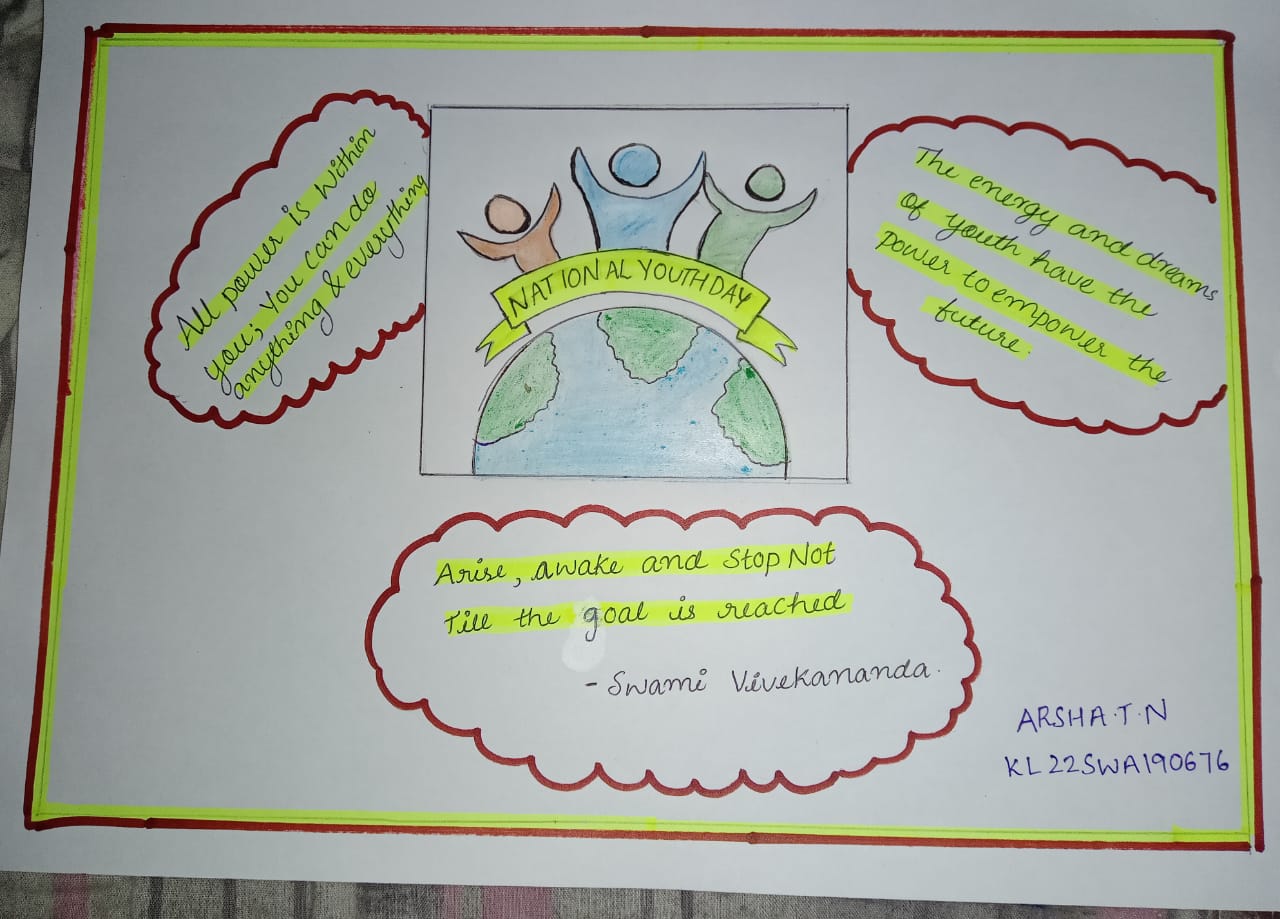 All power is within
you; You can do
anything & everything
NATIONAL YOUTH DAY
The energy and dreams
of youth have the
power to empower the
future.
Arise, awake and Stop Not
Till the goal is reached
- Swami Vivekananda.
ARSHA.T.N
KL22SWA190676